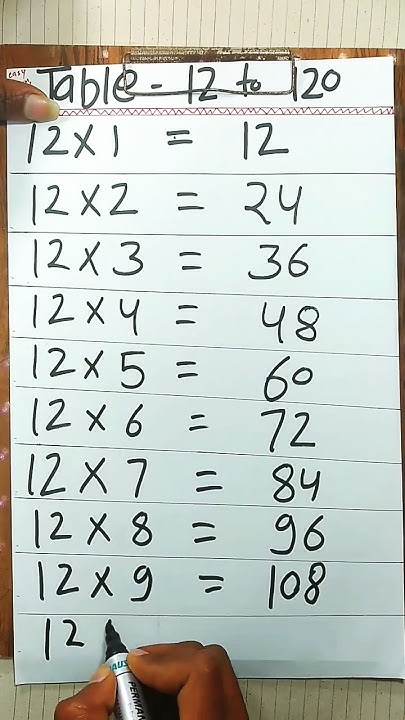 easy
Table - 12 to 120
12 x 1 = 12
12 x 2 = 24
12 x 3 = 36
12 x 4 = 48
12 x 5 = 60
12 x 6 = 72
12 x 7 = 84
12 x 8 = 96
12 x 9 = 108
12
PERMAN